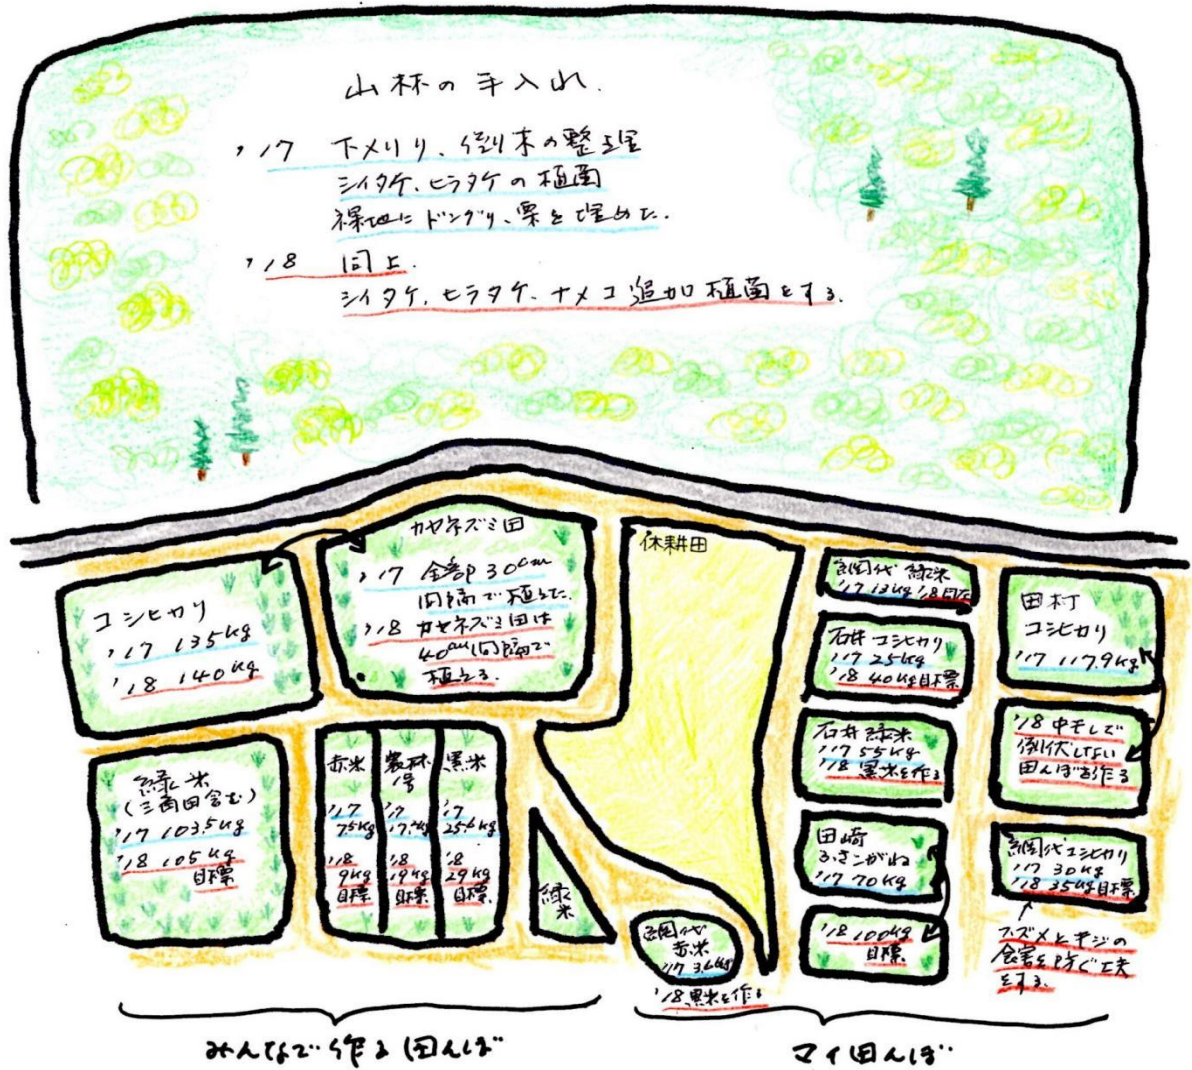 山林の手入れ.
'17 下メリリ、倒木の整理
シイタケ、ヒラタケの植菌
裸地にドングリ、栗を埋めた.
'18 同上.
シイタケ、ヒラタケ、ナメコ追加植菌をする.
コシヒカリ
'17 135kg
'18 140kg
カヤネズミ田
'17 全部30cm
間隔で植えた.
'18 カヤネズミ田は
40cm間隔で
植える.
緑米
(三角田含む)
'17 103.5kg
'18 105kg
目標
赤米
'17
'18
9kg
目標
農林
号
'17
'18
19kg
目標
黒米
'17
25.6kg
'18
29kg
目標
緑米
休耕田
網代 緑米
'17 13kg '18 同左
石井 コシヒカリ
'17 25kg
'18 40kg目標
石井 緑米
'17 55kg
'18 黒米を作る
田崎
ふさこがね
'17 70kg
'18 100kg
目標
網代
赤米
'17 3.6kg
'18 黒米を作る
田村
コシヒカリ
'17 117.9kg
'18 中干しで
倒伏しない
田んぼを作る
網代コシヒカリ
'17 30kg
'18 35kg目標
スズメとキジの
食害を防ぐ工夫
をする.
みんなで作る田んぼ
マイ田んぼ